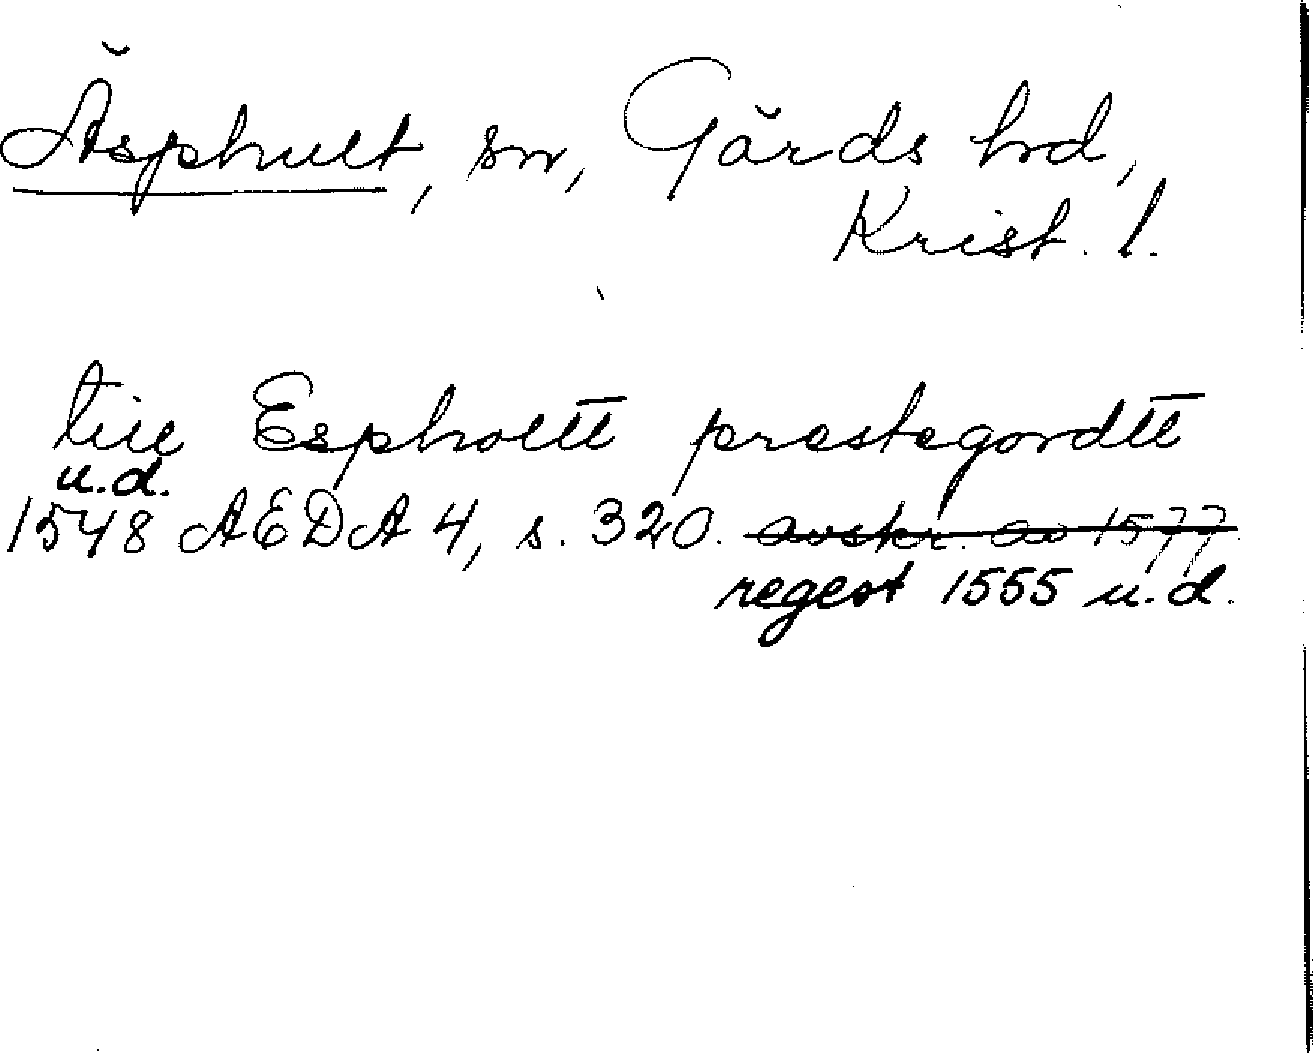 Äsphult, sn, Gärds hd,
Krist. l.
till Espholtt prestegordtt
u.d.
1548 AEDA 4, s. 320. avskr. av 1577.
regest 1555 u.d.